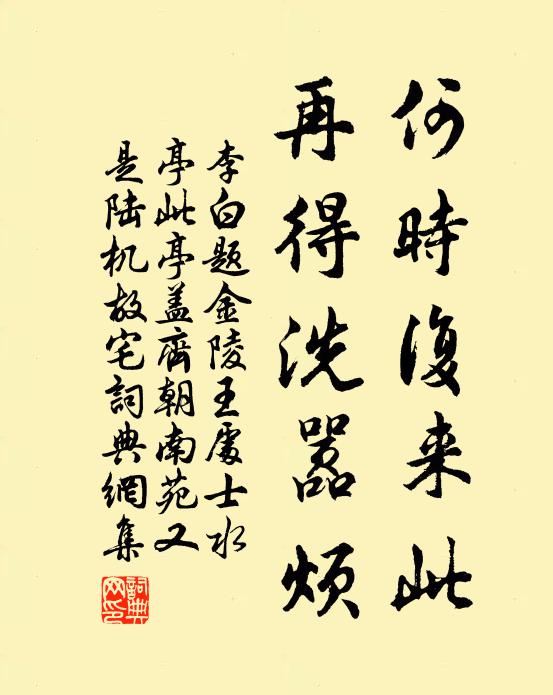 何時復来此
再得洗嚣煩
李白题金陵王處士水
亭此亭盖齊朝南苑又
是陆机故宅詞典網集
詞典網印